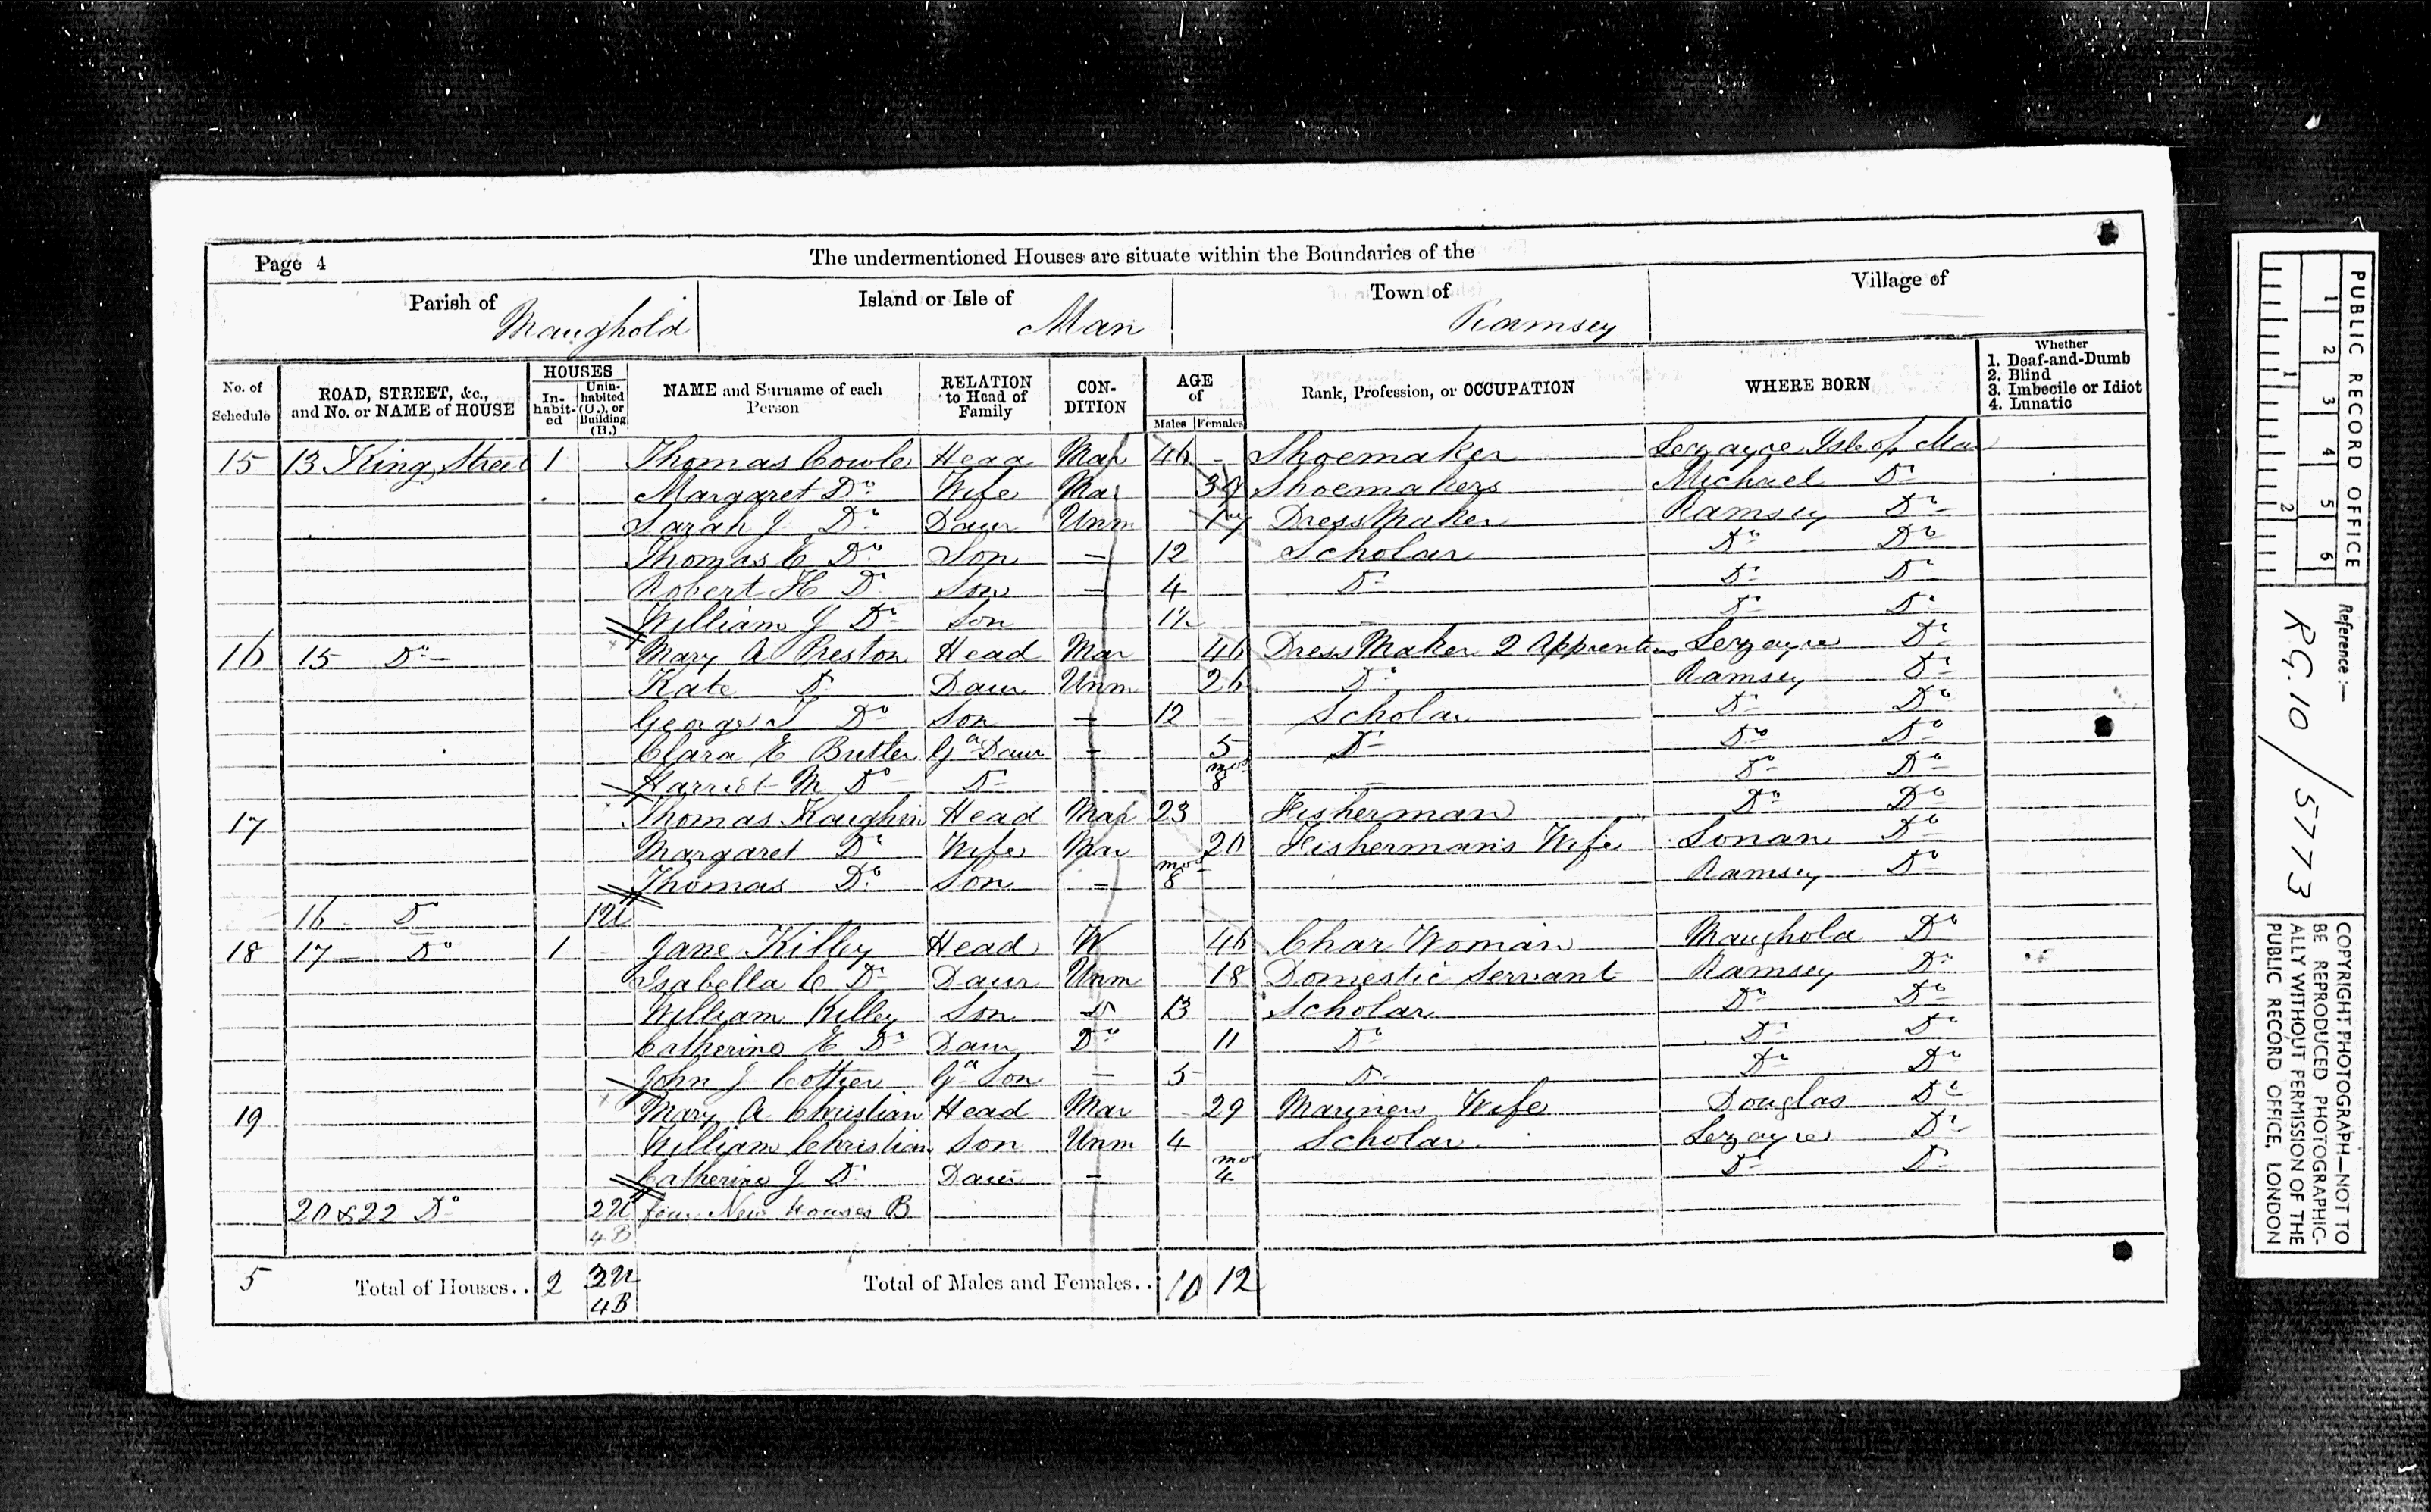 The undermentioned Houses are situate within the Boundaries of the
Page 4
Parish of Maughold
Island or Isle of Man
Town of Ramsey
Village of
No. of Schedule
ROAD, STREET, &c., and No. or NAME of HOUSE
HOUSES
Inhabited
Uninhabited (U.), or Building (B.)
NAME and Surname of each Person
RELATION to Head of Family
CONDITION
AGE of
Males Females
Rank, Profession, or OCCUPATION
WHERE BORN
Whether
1. Deaf-and-Dumb
2. Blind
3. Imbecile or Idiot
4. Lunatic
15 13 King Street 1 Thomas Cowle Head Mar 46 - Shoemaker Lezayre Isle of Man
Margaret Do Wife Mar 39 Shoemakers Michael Do
Sarah J Do Daur Unm 17 Dress Maker Ramsey Do
Thomas C Do Son - 12 Scholar Do Do
Robert H Do Son - 4 Do Do Do
William J Do Son Do Do
16 15 Do Mary A Preston Head Mar 46 Dress Maker 2 Apprentices Lezayre Do
Kate Do Daur Unm 26 Do Ramsey Do
George T Do Son - 12 Scholar Do Do
Clara E Butler Ga Daur - 5 Do Do Do
Harriet M Do Do mos 8 - Do Do
17 Thomas Kaughin Head Mar 23 Fisherman Do Do
Margaret Do Wife Mar 20 Fisherman's Wife Lonan Do
Thomas Do Son - mos 8 Ramsey Do
16 Do 1U
18 17 Do 1 Jane Killey Head W 46 Char Woman Maughold Do
Isabella C Do Daur Unm 18 Domestic Servant Ramsey Do
William Killey Son Do 13 Scholar Do Do
Catherine E Do Daur Do 11 Do Do Do
John J Cottier Ga Son - 5 Do Do Do
19 Mary A Christian Head Mar 29 Mariners Wife Douglas Do
William Christian Son Unm 4 Scholar Lezayre Do
Catherine J Do Daur - mos 4 Do Do
20 & 22 Do 2U four New Houses B
4B
5 Total of Houses.. 2 3U 4B Total of Males and Females.. 10 12
PUBLIC RECORD OFFICE
1 2 3 4 5 6
1 2
Reference:-
RG.10/5773
COPYRIGHT PHOTOGRAPH—NOT TO
BE REPRODUCED PHOTOGRAPHIC-
ALLY WITHOUT PERMISSION OF THE
PUBLIC RECORD OFFICE, LONDON